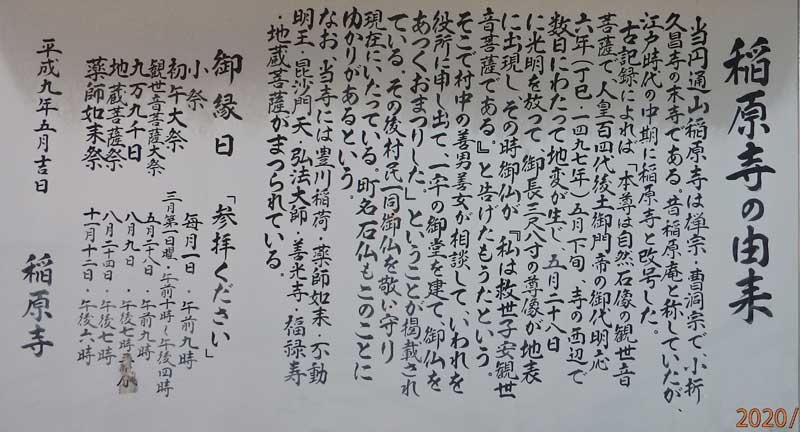 稲原寺の由来
当円通山稲原寺は禅宗、曹洞宗で、小折
久昌寺の末寺である。昔稲原庵と称していたが、
江戸時代の中期に稲原寺と改号した。
古記録によれば「本尊は自然石像の観世音
菩薩で、人皇百四代後土御門帝の御代明応
六年(丁巳・一四九七年)五月下旬、寺の西辺で
数日にわたって地変が生じ、五月二十八日
に光明を放って、御長三尺八寸の尊像が地表
に出現し、その時御仏が、『私は救世子安観世
音菩薩である。』と告げたもうたという。
そこで村中の善男善女が相談して、いわれを
役所に申し出て、一宇の御堂を建て、御仏を
あつくおまつりした。」ということが掲載され
ている。その後村民一同御仏を敬い守り
現在にいたっている。町名石仏もこのことに
ゆかりがあるという。
なお、当寺には豊川稲荷・薬師如来・不動
明王・毘沙門天・弘法大師・善光寺・福禄寿
・地蔵菩薩がまつられている。
御縁日 「参拝ください」
小祭 毎月一日・午前九時
初午大祭 三月第一日曜・午前十時〜午後四時
観世音菩薩大祭 五月二十八日・午前九時
九万九千日 八月九日・午後七時
地蔵菩薩祭 八月二十四日・午後七時
薬師如来祭 十一月十二日・午後六時
平成九年五月吉日
稲原寺
2020/